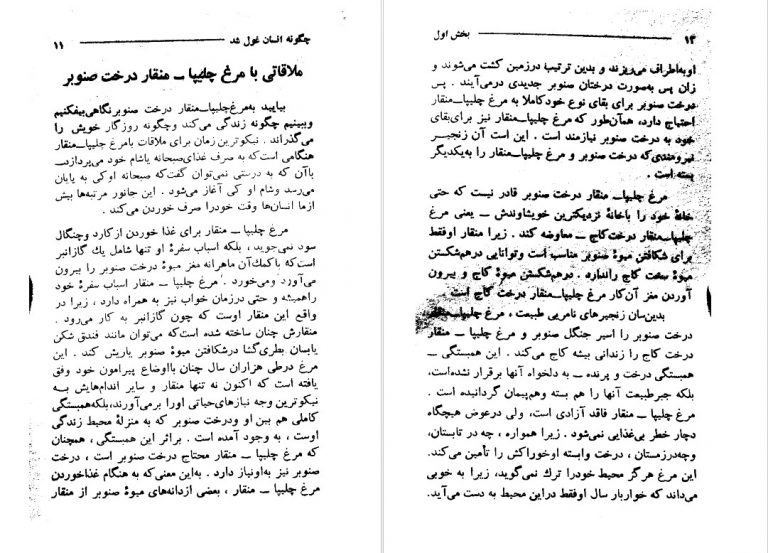 چگونه انسان غول شد ۱۱
ملاقاتی با مرغ چلیپا ــ منقار درخت صنوبر
بیایید به‌مرغ‌چلیپا‌ــ‌منقار درخت صنوبر‌نگاهی‌بیفکنیم
و‌ببینیم چگونه زندگی می‌کند وچگونه روزگار خویش را
می‌گذراند . نیکوترین زمان برای ملاقات بامرغ چلیپا‌ــ‌منقار
هنگامی است‌که به صرف غذای‌صبحانه یاشام خود می‌پردازد‌ــ
باآن که به درستی نمی‌توان گفت‌که صبحانه اوکی به پایان
می‌رسد وشام او کی آغاز می‌شود . این جانور مرتبه‌ها بیش
ازما انسان‌ها وقت خودرا صرف خوردن می‌کند .
مرغ چلیپا ــ منقار برای غذا خوردن ازکارد وچنگال
سود نمی‌جوید ، بلکه اسباب سفرهٔ او تنها شامل یك گازانبر
است‌که باکمك‌آن ماهرانه مغز میوهٔ درخت صنوبر را بیرون
می‌آورد ومی‌خورد . مرغ چلیپا ــ منقار اسباب سفرهٔ خود
راهمیشه و حتی درزمان خواب نیز به همراه دارد ، زیرا در
واقع این منقار اوست که چون گازانبر به کار می‌رود .
منقارش چنان ساخته شده است‌که می‌توان مانند فندق شکن
یابسان بطری‌گشا درشکافتن میوهٔ صنوبر یاریش کند . این
مرغ درطی هزاران سال چنان بااوضاع پیرامون خود وفق
یافته است که اکنون نه تنها منقار و سایر اندام‌هایش بــه
نیکوترین وجه نیازهای‌حیاتی اورا برمی‌آورند،بلکه‌همبستگی
کاملی هم بین او ودرخت صنوبر که به منزلهٔ محیط زندگی
اوست ، به وجود آمده است . براثر این همبستگی ، همچنان
که مرغ چلیپا ــ منقار محتاج درخت صنوبر است ، درخت
صنوبر نیز به‌اونیاز دارد . به‌این معنی‌که به هنگام غذاخوردن
مرغ چلیپا ــ منقار ، بعضی ازدانه‌های میوهٔ صنوبر از منقار
۱۲ بخش اول
اوبه‌اطراف می‌ریزند و بدین ترتیب درزمین کشت می‌شوند و
زان پس به‌صورت درختان صنوبر جدیدی درمی‌آیند . پس
درخت صنوبر برای بقای نوع خودکاملا به مرغ چلیپا‌ــ‌منقار
احتیاج دارد، همان‌طور که مرغ چلیپا‌ــ‌منقار نیز برای‌بقای
خود به درخت صنوبر نیازمند است . این است آن زنجیر
نیرومندی‌که درخت صنوبر و مرغ چلیپا‌ــ‌منقار را به‌یکدیگر
بسته است .
مرغ چلیپا‌ــ منقار درخت صنوبر قادر نیست که حتی
خانهٔ خود را باخانهٔ نزدیکترین خویشاوندش ــ یعنی مرغ
چلیپا‌ــ‌منقار درخت‌کاج‌ــ معاوضه کند . زیرا منقار اوفقط
برای شکافتن میوهٔ صنوبر مناسب است وتوانایی درهم‌شکستن
میوهٔ سخت کاج راندارد . درهم‌شکستن میوهٔ کاج و بیرون
آوردن مغز آن‌کار مرغ چلیپا‌ــ‌منقار درخت کاج است .
بدین‌سان زنجیرهای نامریی طبیعت ، مرغ چلیپا‌ــ‌منقار
درخت صنوبر را اسیر جنگل صنوبر و مرغ چلیپا ــ منقار
درخت کاج را زندانی بیشه کاج می‌کند . این همبستگی ــ
همبستگی درخت و پرنده ــ به دلخواه آنها برقرار نشده‌است،
بلکه جبرطبیعت آنها را هم بسته وهم‌پیمان گردانیده است .
مرغ چلیپا ــ منقار فاقد آزادی است، ولی درعوض هیچگاه
دچار خطر بی‌غذایی نمی‌شود . زیرا همواره ، چه در تابستان،
وچه‌درزمستان ، درخت وابسته اوخوراکش را تأمین می‌کند.
این مرغ هرگز محیط خودرا ترك نمی‌گوید، زیرا به خوبی
می‌داند که خواربار سال اوفقط دراین محیط به دست می‌آید.